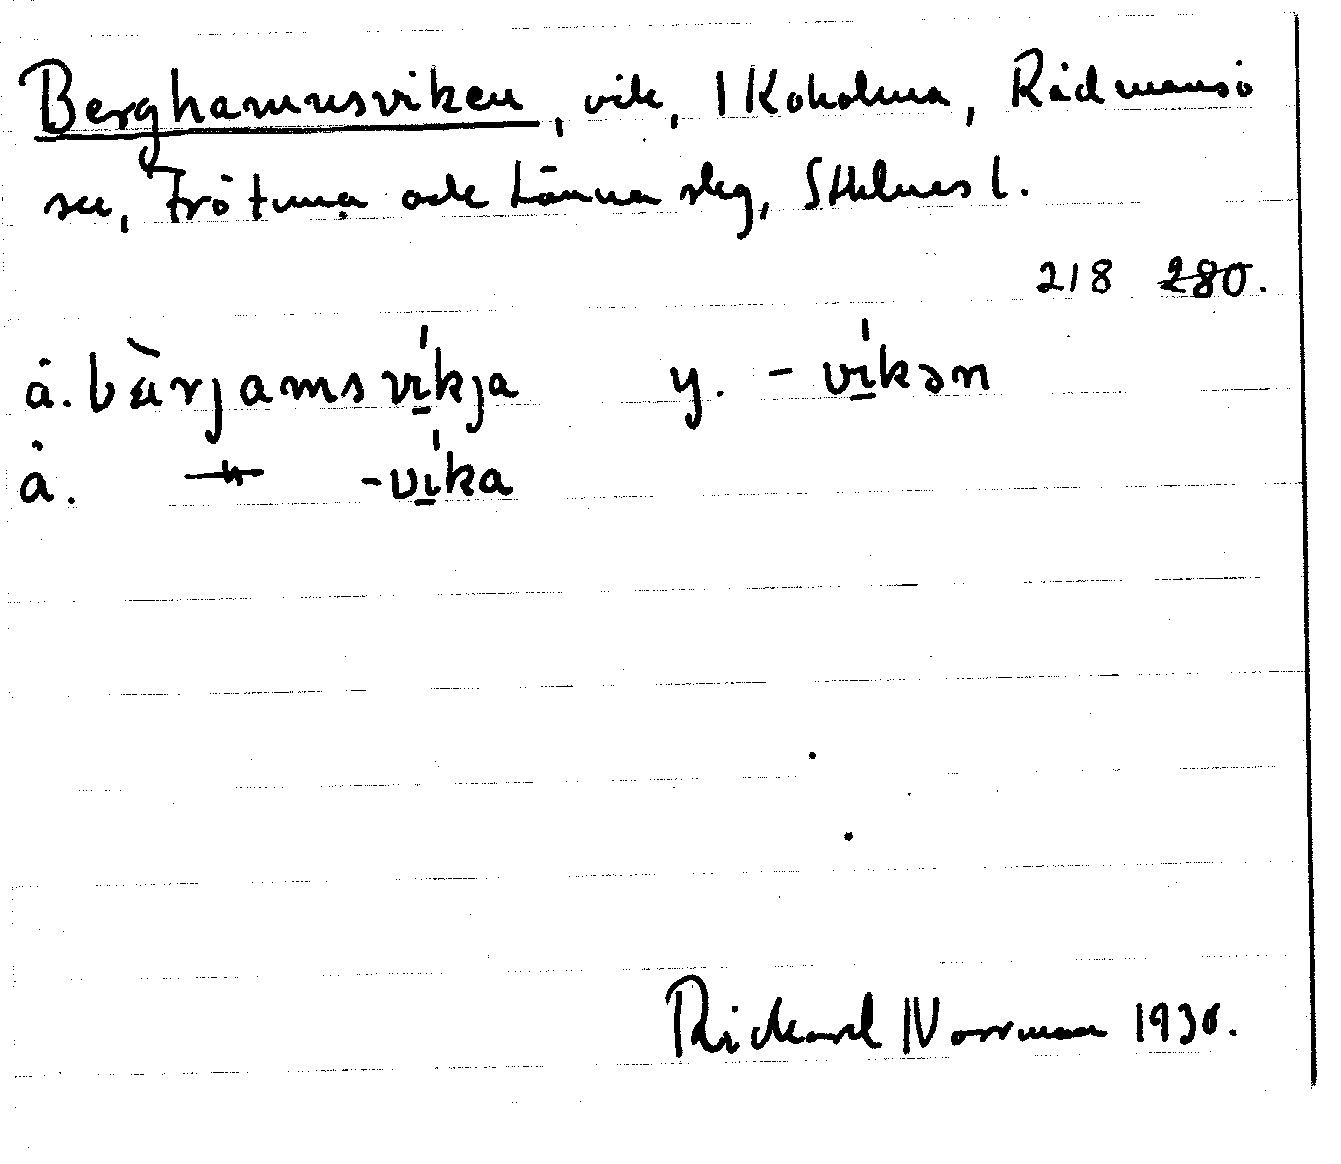 Berghamnsviken, vik, 1 Kokolma, Rådmansö
sn, Frötuna och Länna skg, Sthlms l.
218 280.
ä. bärjamsvíkja y. -víkən
ä. –"– -víka
Rickard Norrman 1930.